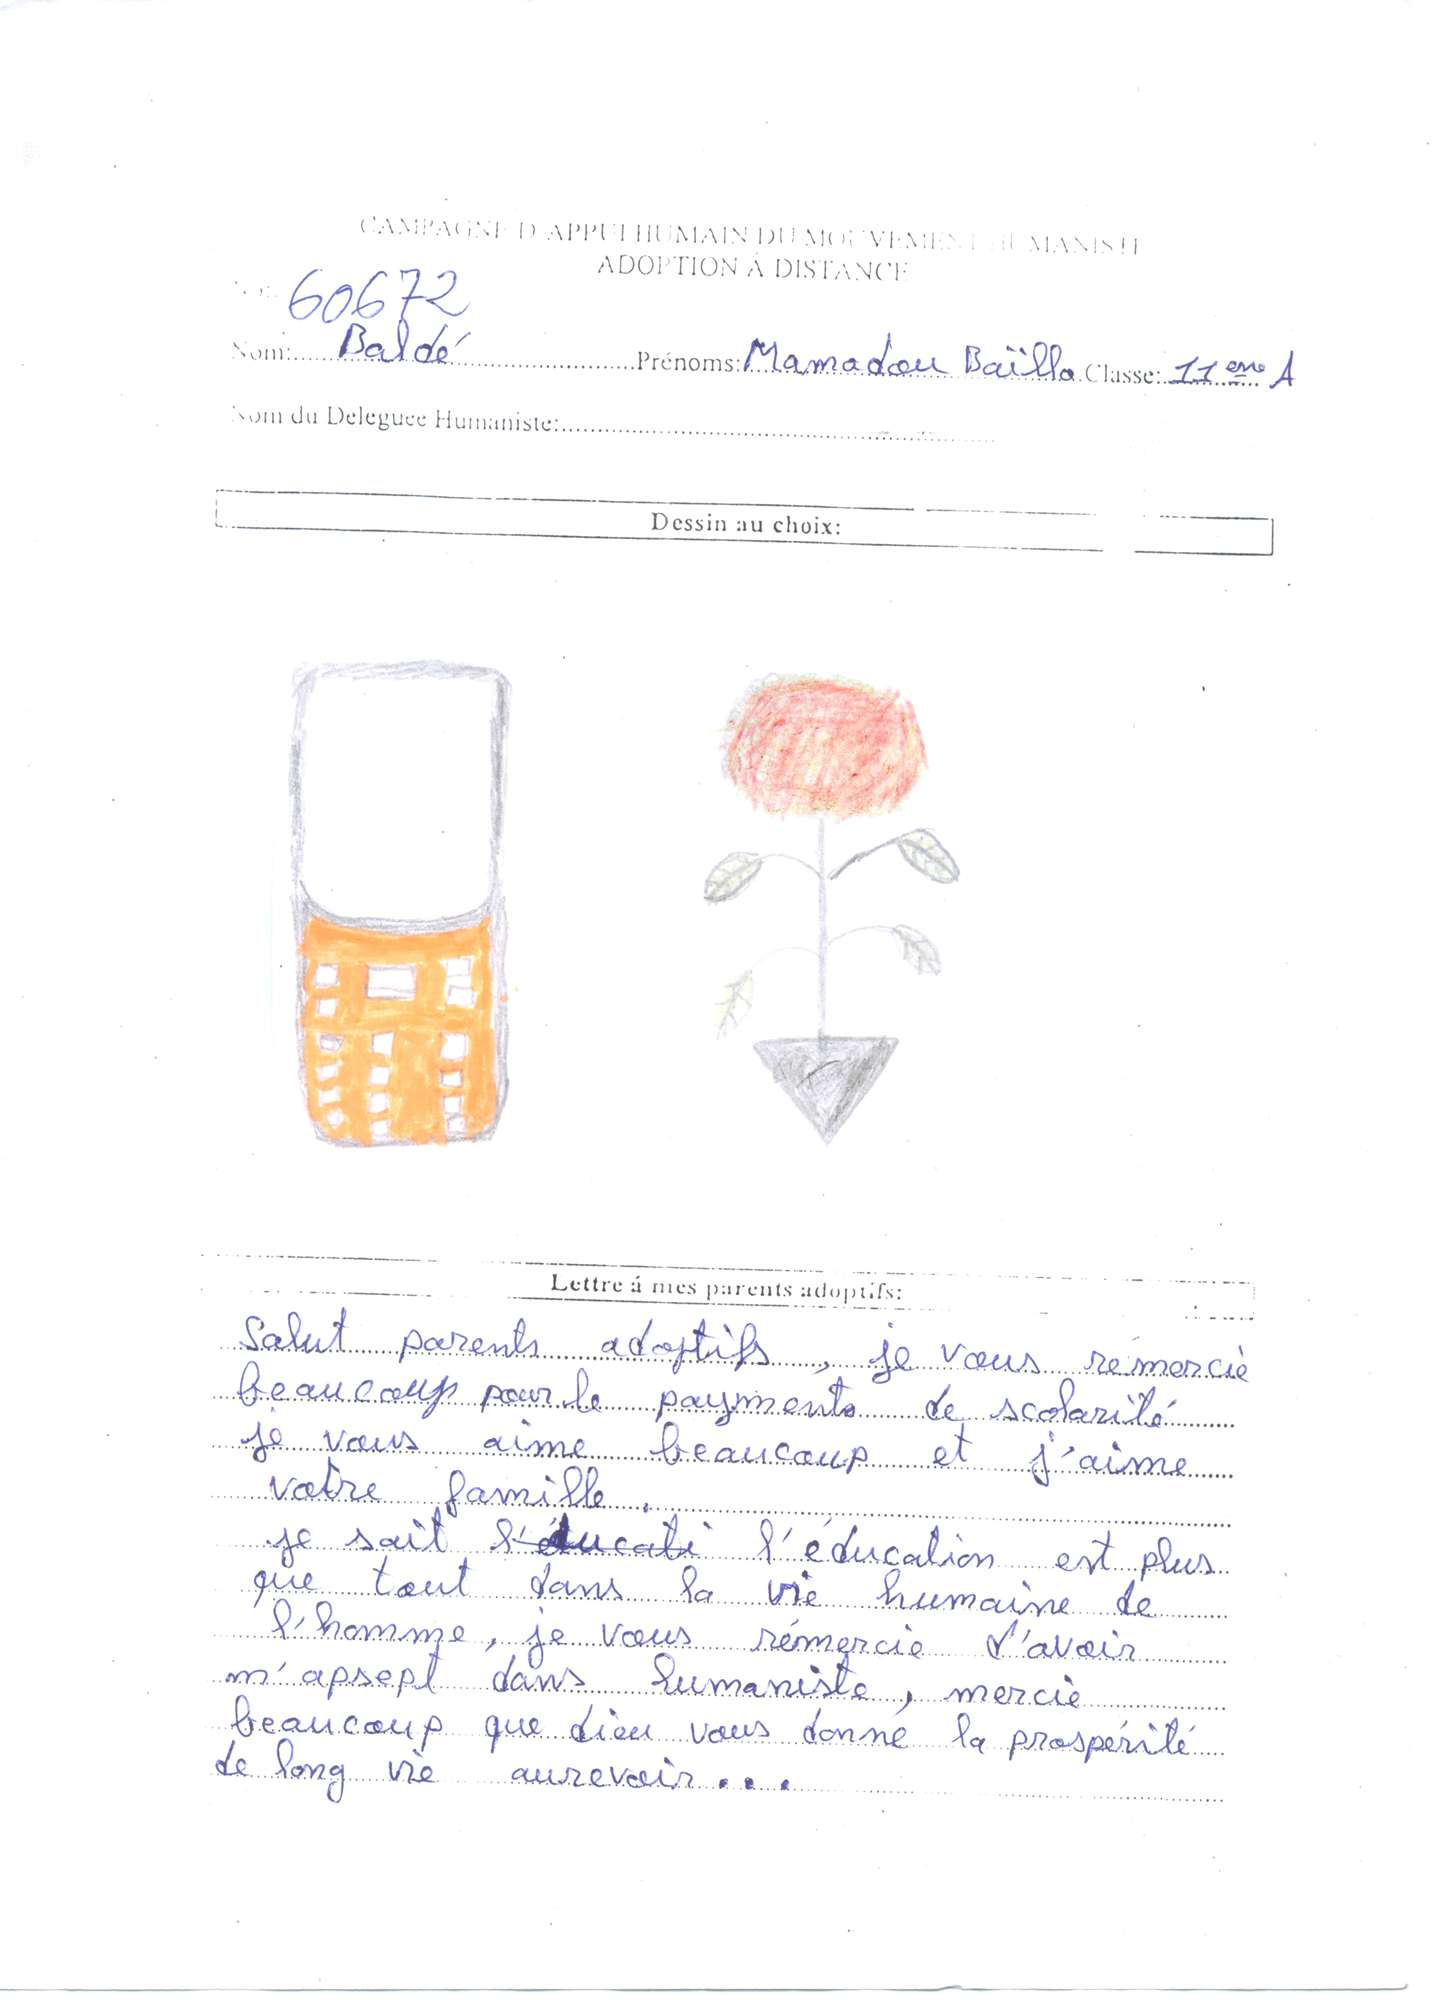 CAMPAGNE D'APPUI HUMAIN DU MOUVEMENT HUMANISTE
ADOPTION À DISTANCE
No: 60672
Nom: Baldé Prénoms: Mamadou Baïllo Classe: 11 eme A
Nom du Deleguee Humaniste:
Dessin au choix:
Lettre á mes parents adoptifs:
Salut parents adoptifs, je vous rémercie
beaucoup pour le payments de scolarité
je vous aime beaucoup et j'aime
votre famille.
je sait l'éducati l'éducation est plus
que tout dans la vie humaine de
l'homme, je vous rémercie d'avoir
m'apsept dans humaniste, mercie
beaucoup que dieu vous donné la prospérité
de long vie aurevoir...